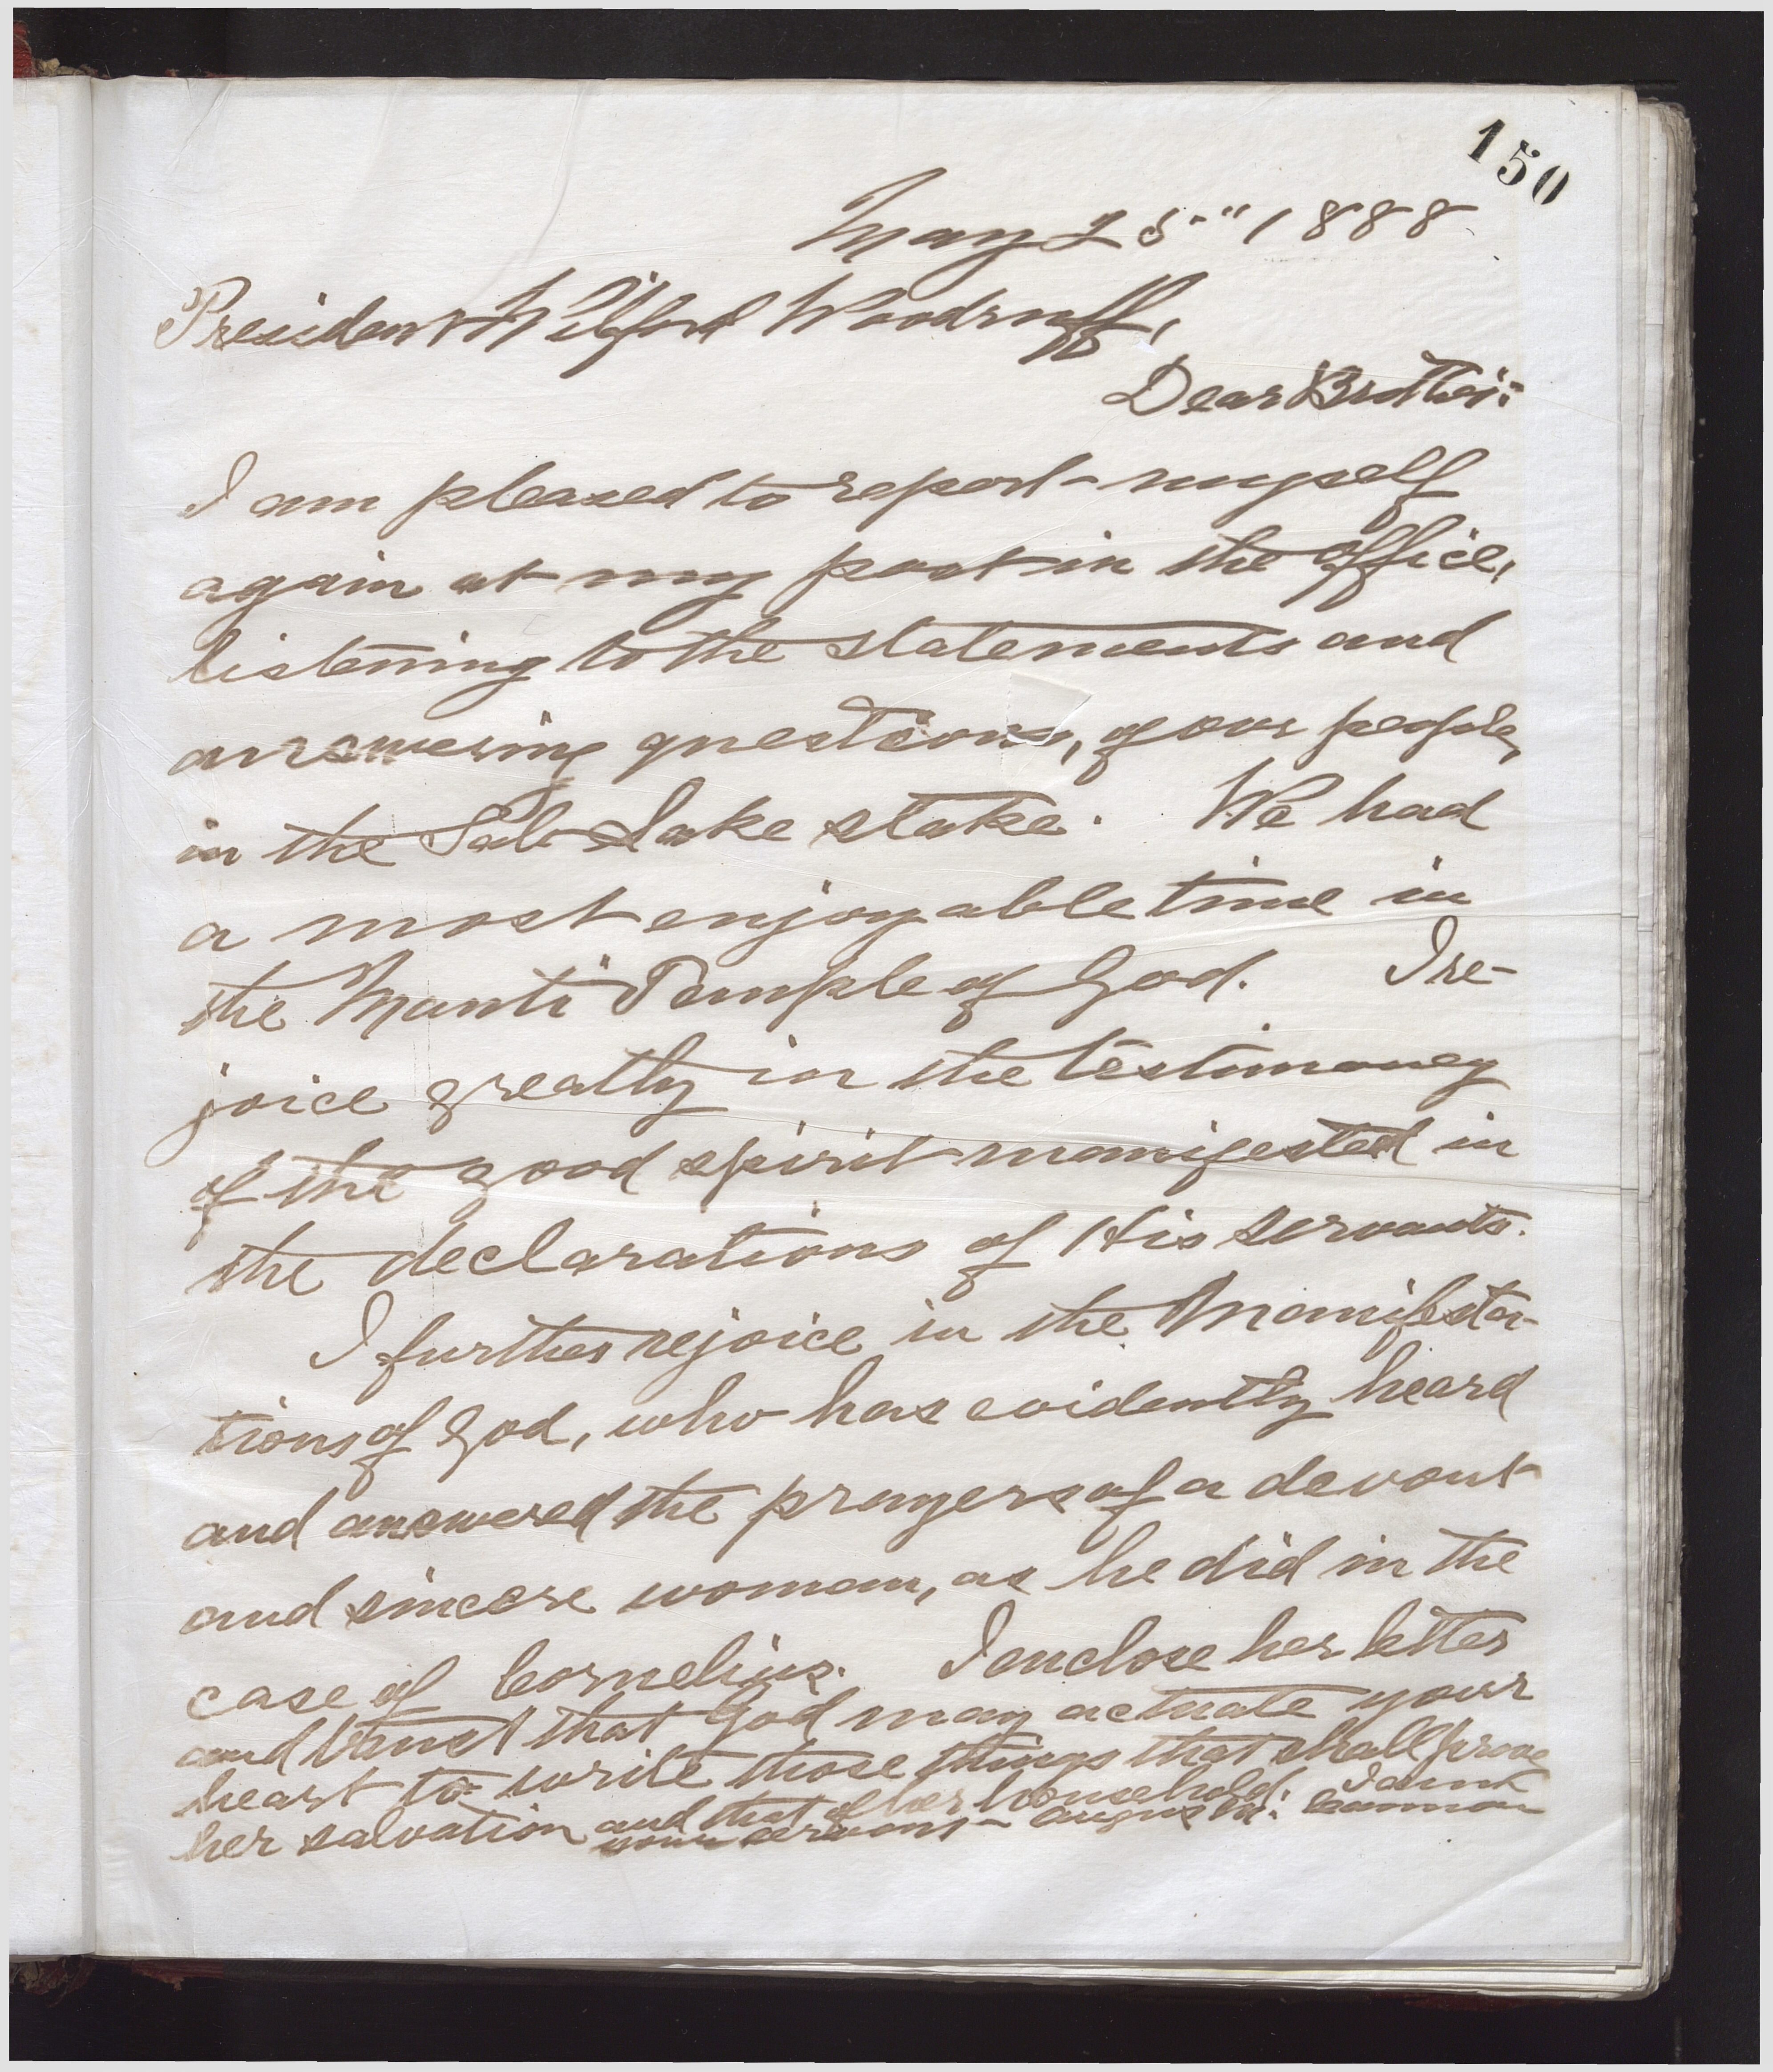 150
May 25" 1888
President Wilford Woodruff,
Dear Brother:
I am pleased to report myself
again at my post in the office,
listening to the statements and
answering questions, of our people,
in the Salt Lake stake. We had
a most enjoyable time in
the Manti Temple of God. I re-
joice greatly in the testimony
of the good spirit manifested in
the declarations of His servants.
I further rejoice in the Manifesta-
tions of God, who has evidently heard
and answered the prayers of a devout
and sincere woman, as he did in the
case of Cornelius. I enclose her letter
and trust that God may actuate your
heart to write those things that shall prove
her salvation and that of her household. I am
your servant Angus M. Cannon